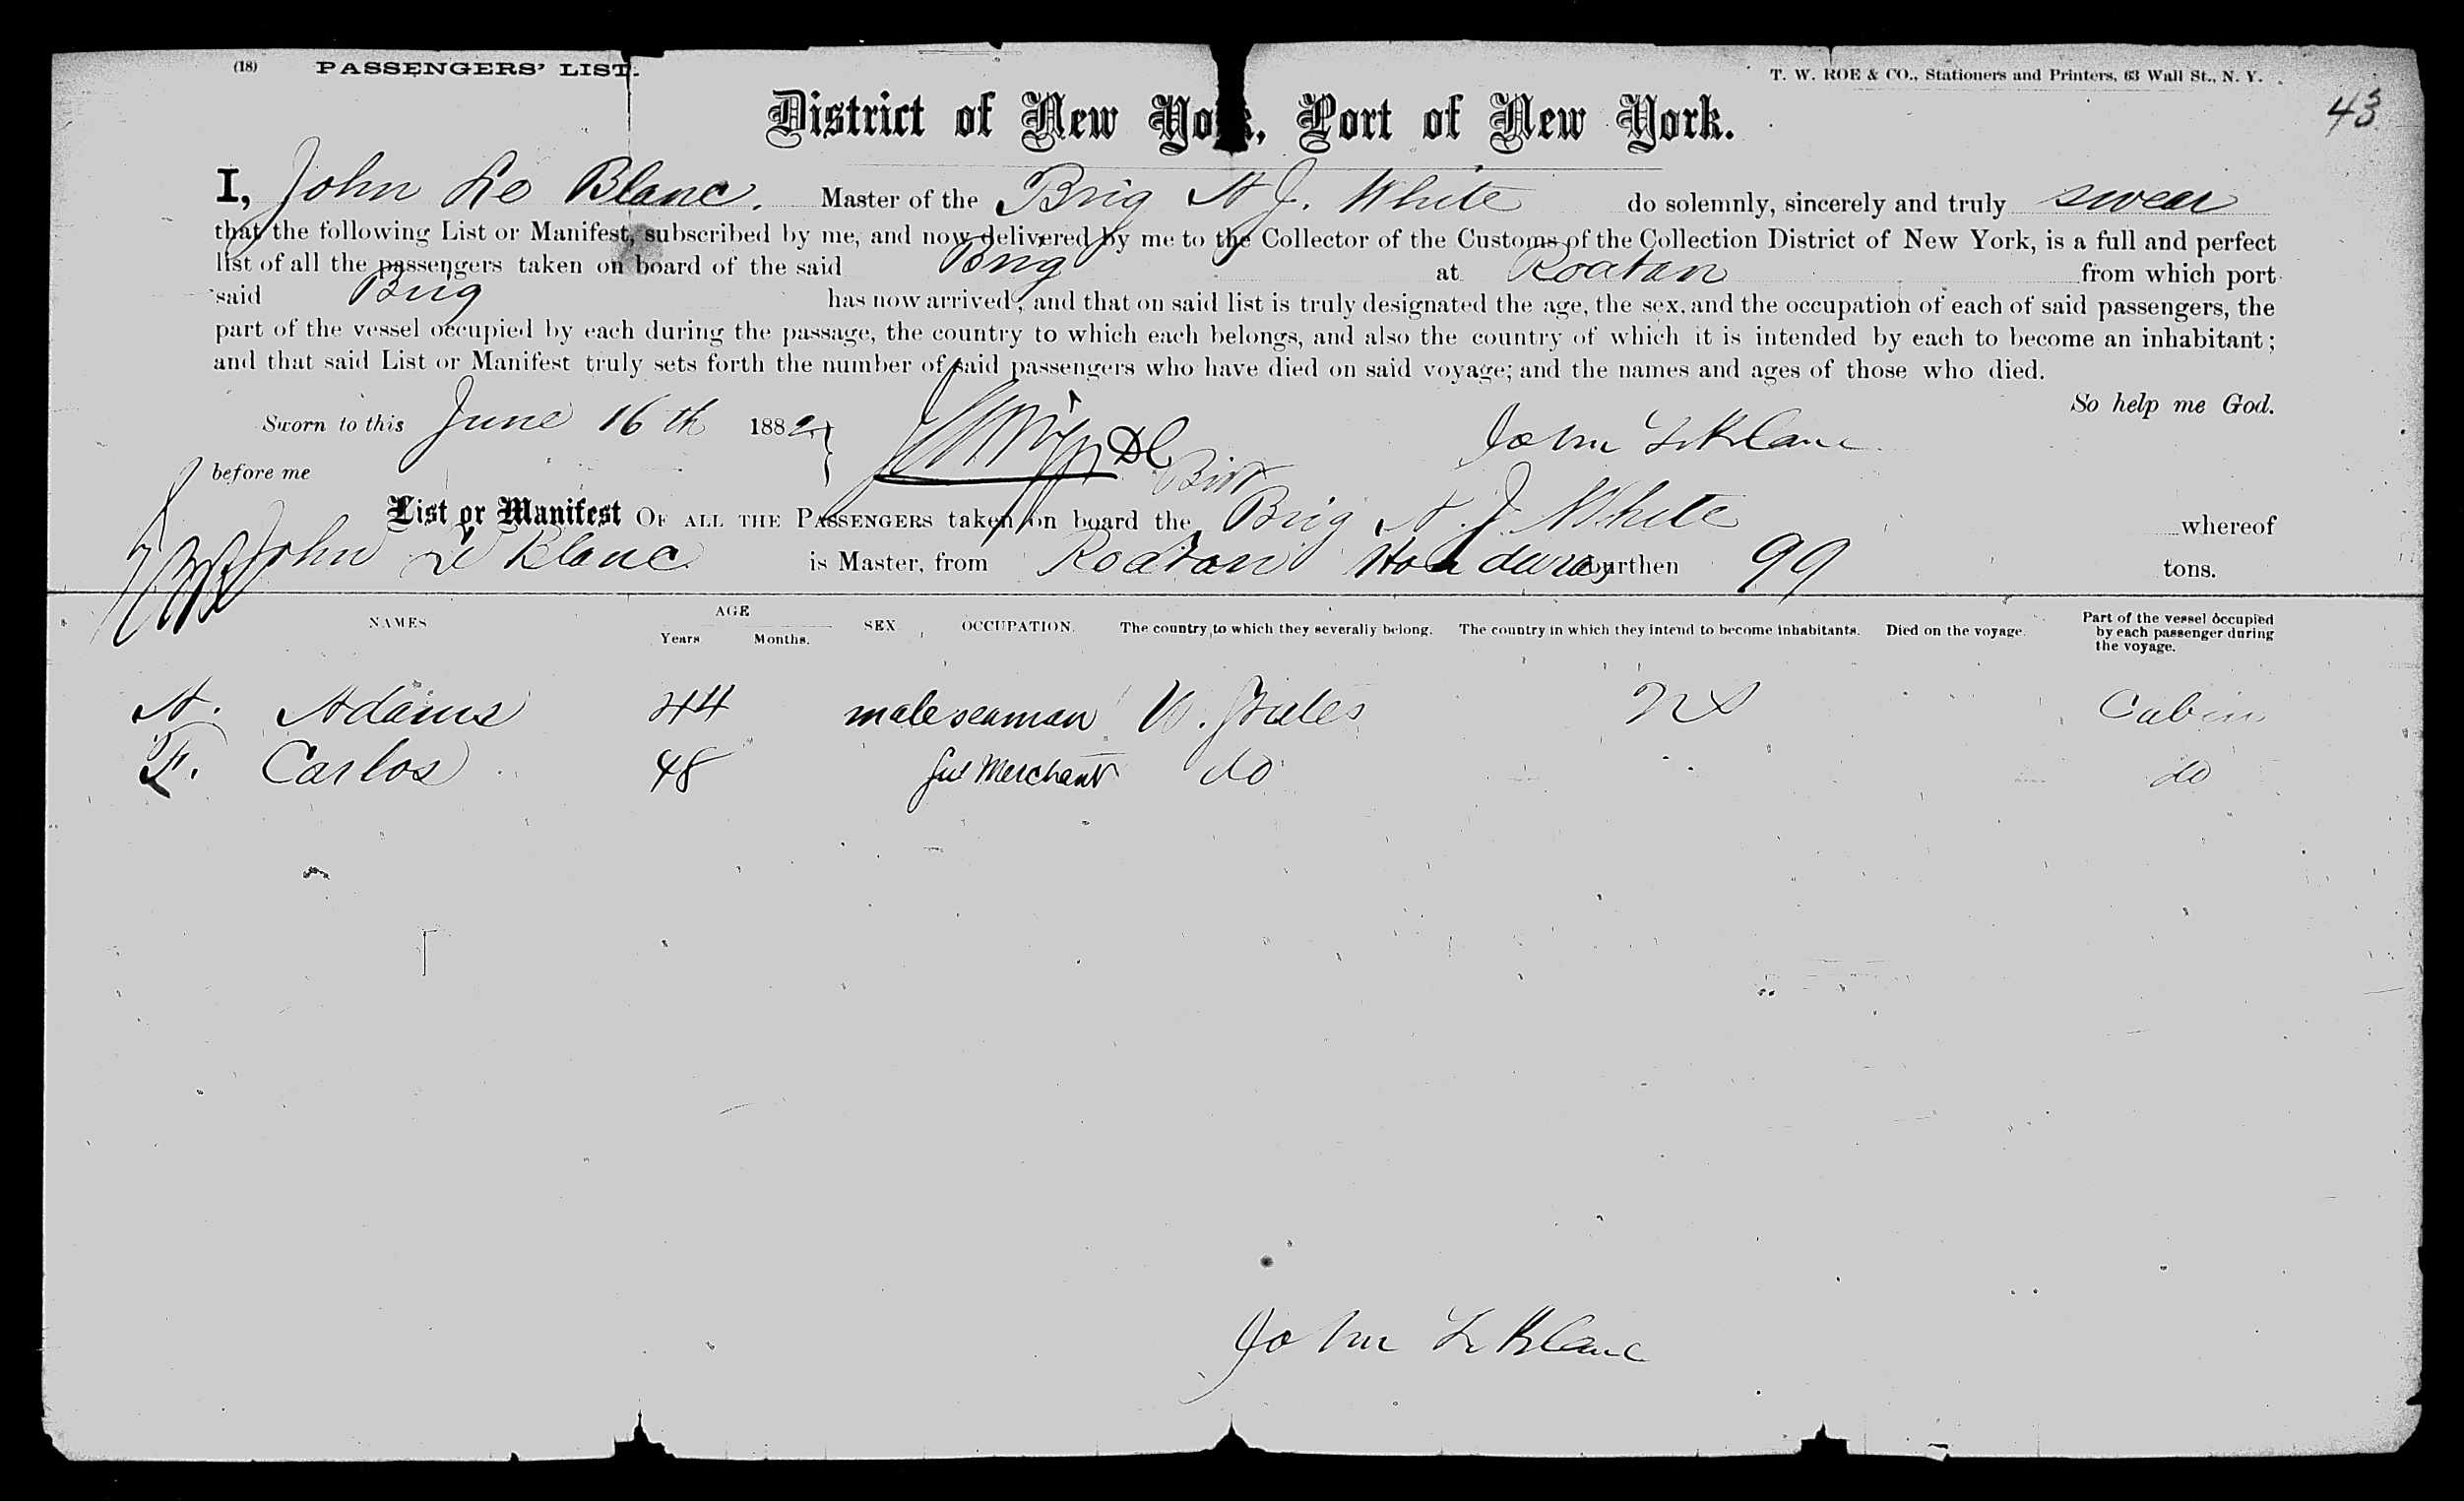 (18) PASSENGERS' LIST. T. W. ROE & CO., Stationers and Printers, 63 Wall St., N. Y.
43
District of New York, Port of New York.
I, John Le Blanc. Master of the Brig A J. White do solemnly, sincerely and truly swear
that the following List or Manifest, subscribed by me, and now delivered by me to the Collector of the Customs of the Collection District of New York, is a full and perfect
list of all the passengers taken on board of the said Brig at Roatan from which port
said Brig has now arrived, and that on said list is truly designated the age, the sex, and the occupation of each of said passengers, the
part of the vessel occupied by each during the passage, the country to which each belongs, and also the country of which it is intended by each to become an inhabitant;
and that said List or Manifest truly sets forth the number of said passengers who have died on said voyage; and the names and ages of those who died.
So help me God.
Sworn to this June 16th 1882 DC John LeBlanc
before me
List or Manifest OF ALL THE PASSENGERS taken on board the Brig A. J. White whereof
John Le Blanc is Master, from Roatan Honduras burthen 99 tons.
NAMES AGE Years Months. SEX OCCUPATION. The country to which they severally belong. The country in which they intend to become inhabitants. Died on the voyage. Part of the vessel occupied by each passenger during the voyage.
A. Adams 44 male seaman U. States Cabin
F. Carlos 48 Merchant do do
John LeBlanc